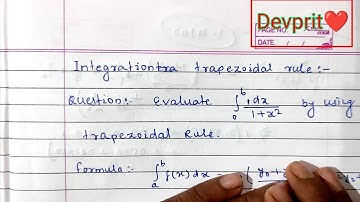 Devprit❤
PAGE NO.
DATE. / /
Integrationtra trapezoidal rule:-
Question:- Evaluate ∫₀⁶ dx/(1+x²) by using
trapezoidal Rule.
Formula:- ∫ₐᵇ f(x)dx = (y₀+